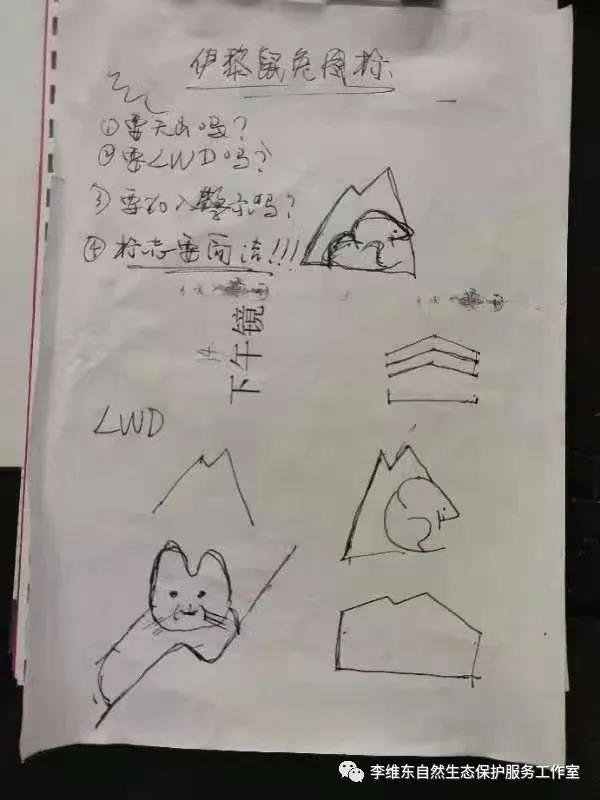 伊黎鼠兔图标
①要天山吗?
②要LWD吗?
③要加入警示吗?
④标志要简洁!!!
下午镜
LWD
李维东自然生态保护服务工作室